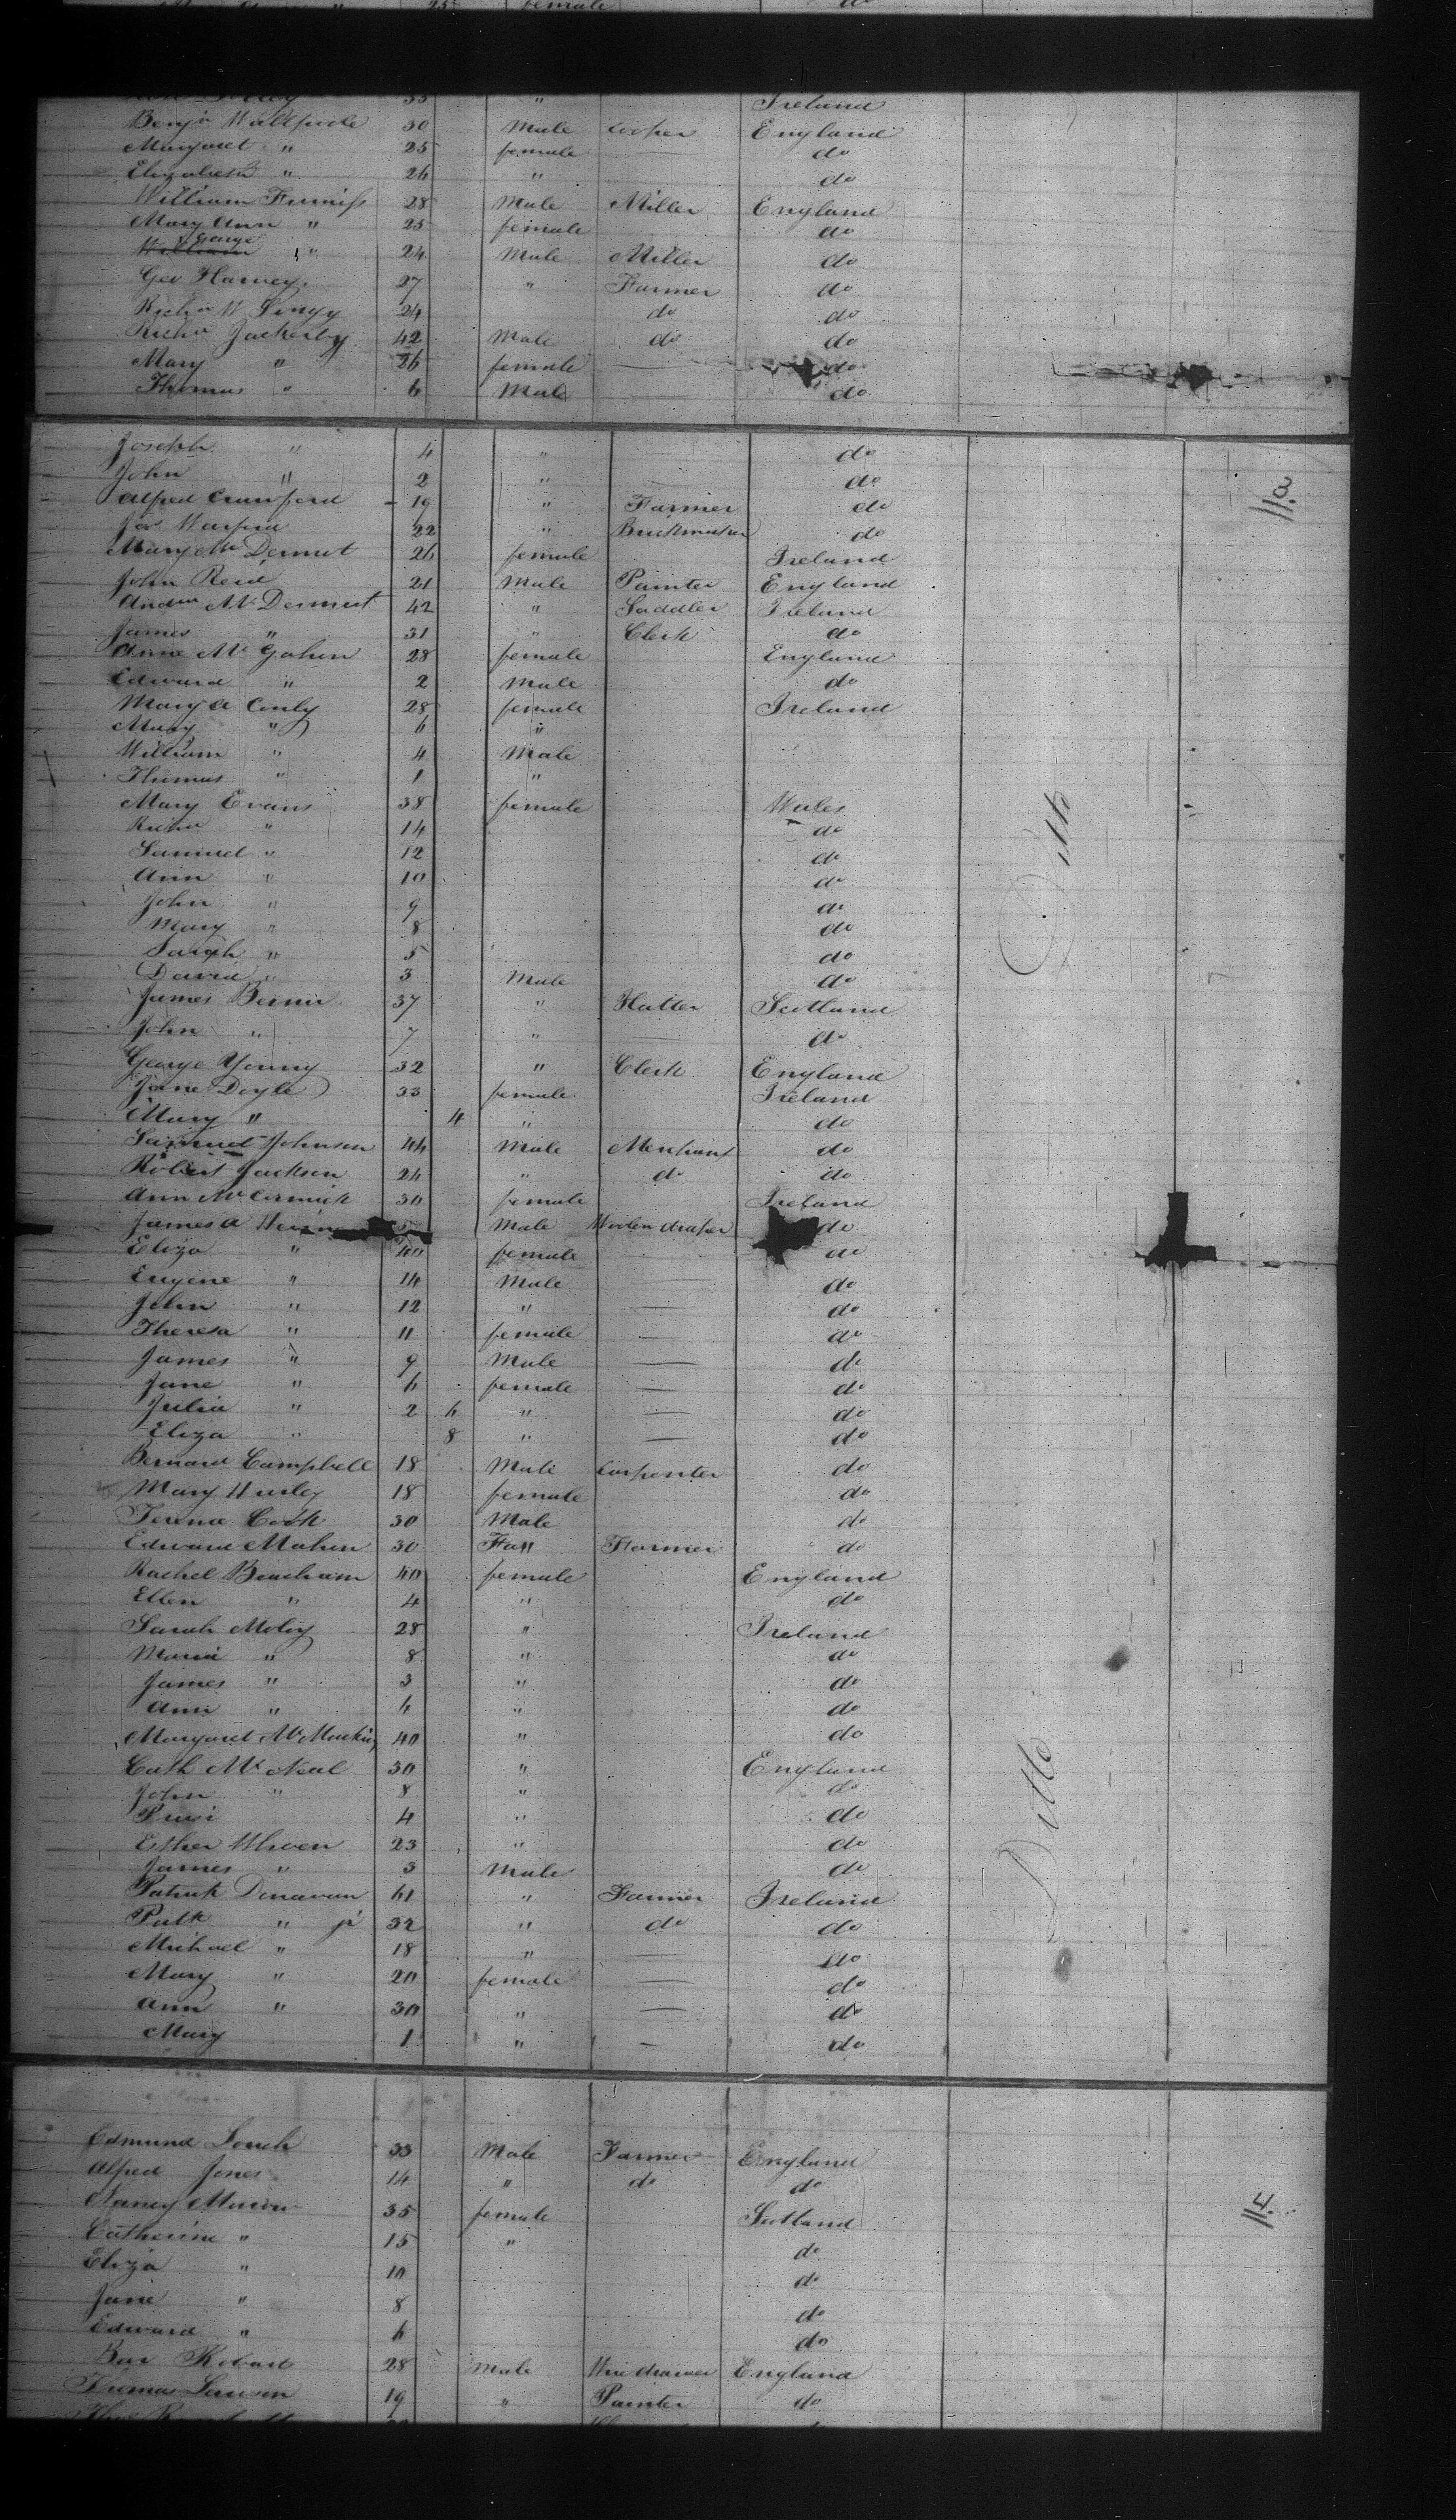 25 female do
33 " Ireland
Benjn Wallpole 30 Male Cooper England
Margaret " 25 female — do
Elizabeth " 26 " do
William Furniss 28 Male Miller England
Mary Ann " 25 female do
George " 24 Male Miller do
Geo Harvey 27 " Farmer do
Richd W 24 do do
Richd Jackerby 42 Male do do
Mary " 26 female — do
Thomas " 6 Male do
Joseph " 4 " do
John " 2 " do
3.
Alfred Crawford 19 " Farmer do
Jos 22 " Brickmaker do
Mary Mc Dermot 26 female Ireland
John Reid 21 Male Painter England
Andw Mc Dermot 42 " Saddler Ireland
James " 31 " Clerk do
Anne Mc Gahen 28 female England
Edward " 2 Male do
Mary A Conly 28 female Ireland
Mary " 6 "
William " 4 Male
Thomas " 1 "
Mary Evans 38 female Wales
Richd " 14 do
Samuel " 12 do
Ann " 10 do
John " 9 do
Mary " 8 do
Sarah " 5 do
David " 3 Male do
James 37 " Hatter Scotland
John " 7 " do
George Young 32 " Clerk England
Jane Doyle 33 female Ireland
Mary " 4 " do
Samuel Johnson 44 Male Merchant do
Robert Jackson 24 " do do
Ann Mc Cormick 30 female Ireland
James A Male Woolen draper do
Eliza " 40 female — do
Eugene " 14 Male — do
John " 12 " — do
Theresa " 11 female — do
James " 9 Male — do
Jane " 6 female — do
Julia " 2 6 " — do
Eliza " 8 " — do
Bernard Campbell 18 Male Carpenter do
Mary Hurley 18 female do
Terence Cook 30 Male do
Edward Mahon 30 Farmer do
Rachel Beacham 40 female England
Ellen " 4 " do
Sarah Moloy 28 " Ireland
Maria " 8 " do
James " 3 " do
Ann " 4 " do
Margaret Mc 40 " do
Cath Mc Neal 30 " England
John " 8 " do
4 " do
Ditto
Esther 23 " do
James " 3 Male do
Patrick Donavan 61 " Farmer Ireland
Patk " jr 32 " do do
Michael " 18 " — do
Mary " 20 female — do
Ann " 30 " — do
Mary 1 " — do
Edmund 33 Male Farmer England
Alfred Jones 14 " do do
Nancy 35 female Scotland
4.
Catherine " 15 " do
Eliza " 10 do
Jane " 8 do
Edward " 6 do
28 Male Wire drawer England
Thomas 19 " Painter do